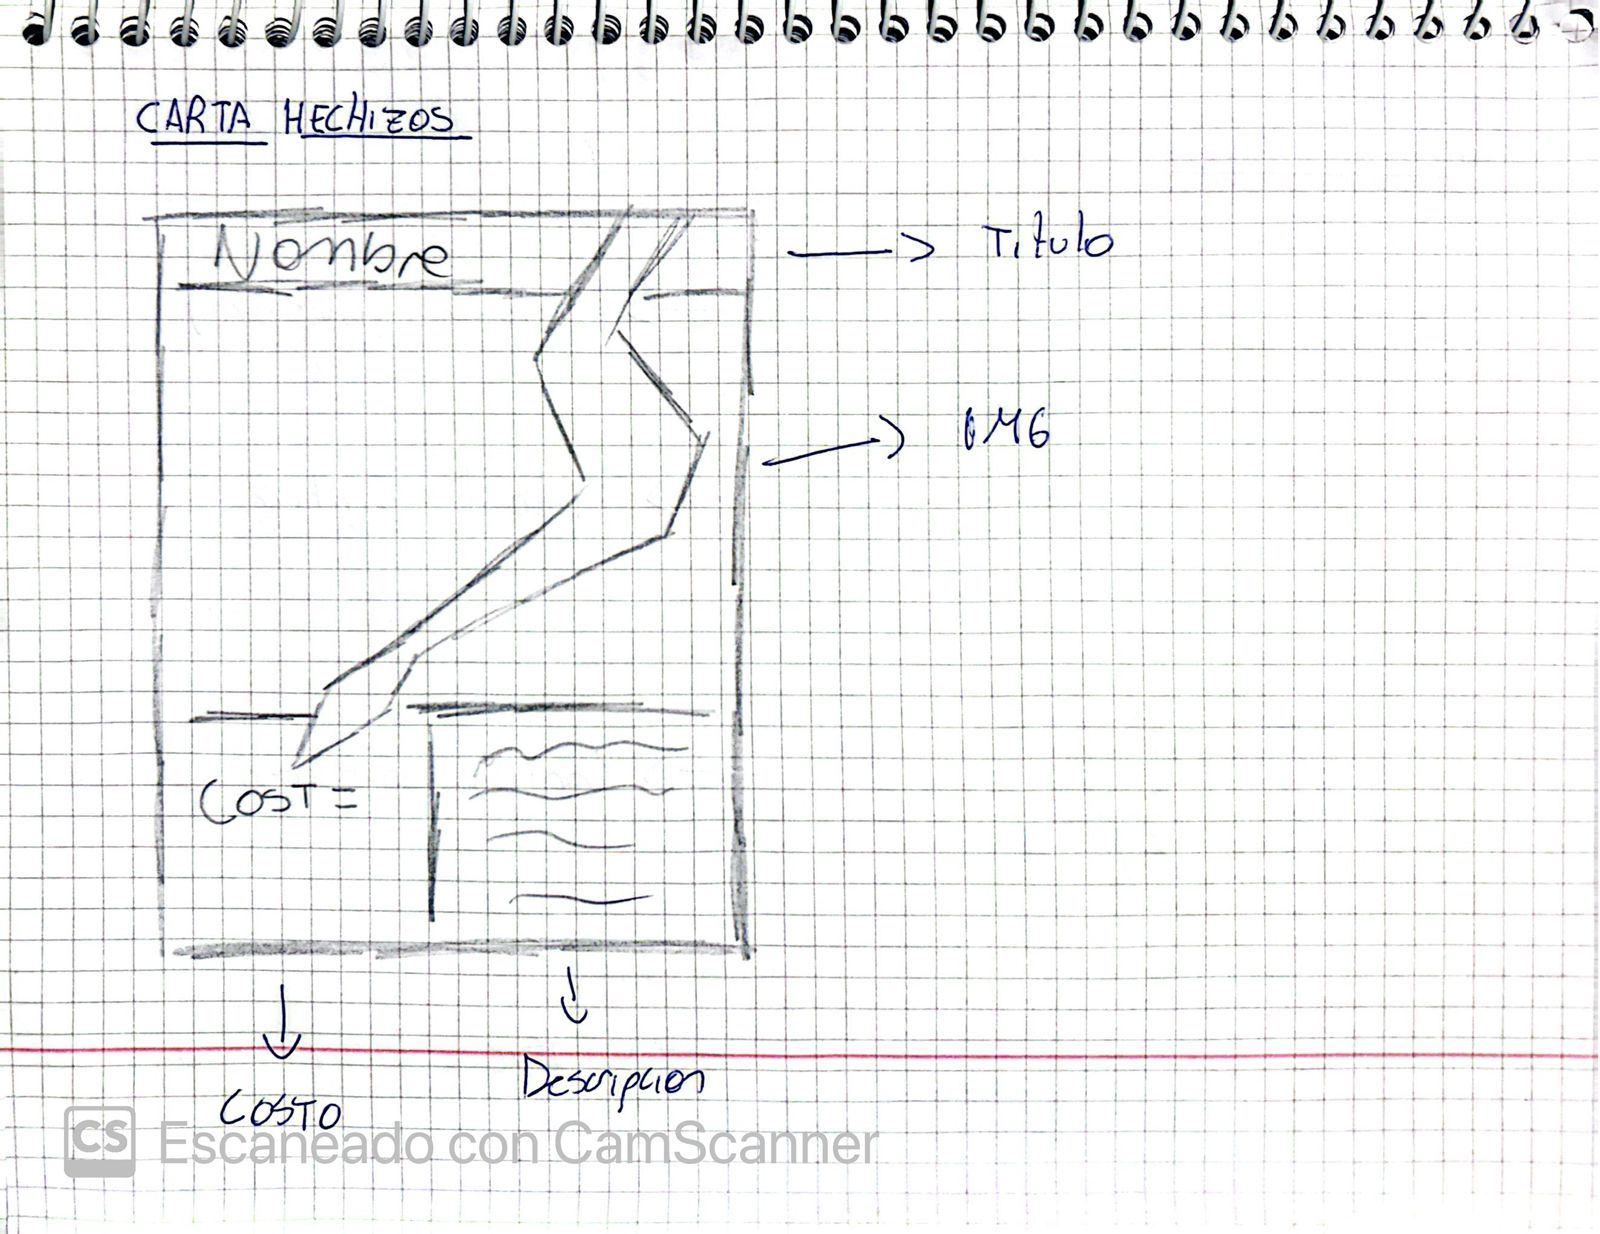 CARTA HECHIZOS
Nombre
Titulo
IMG
COST =
Descripcion
COSTO
CS Escaneado con CamScanner